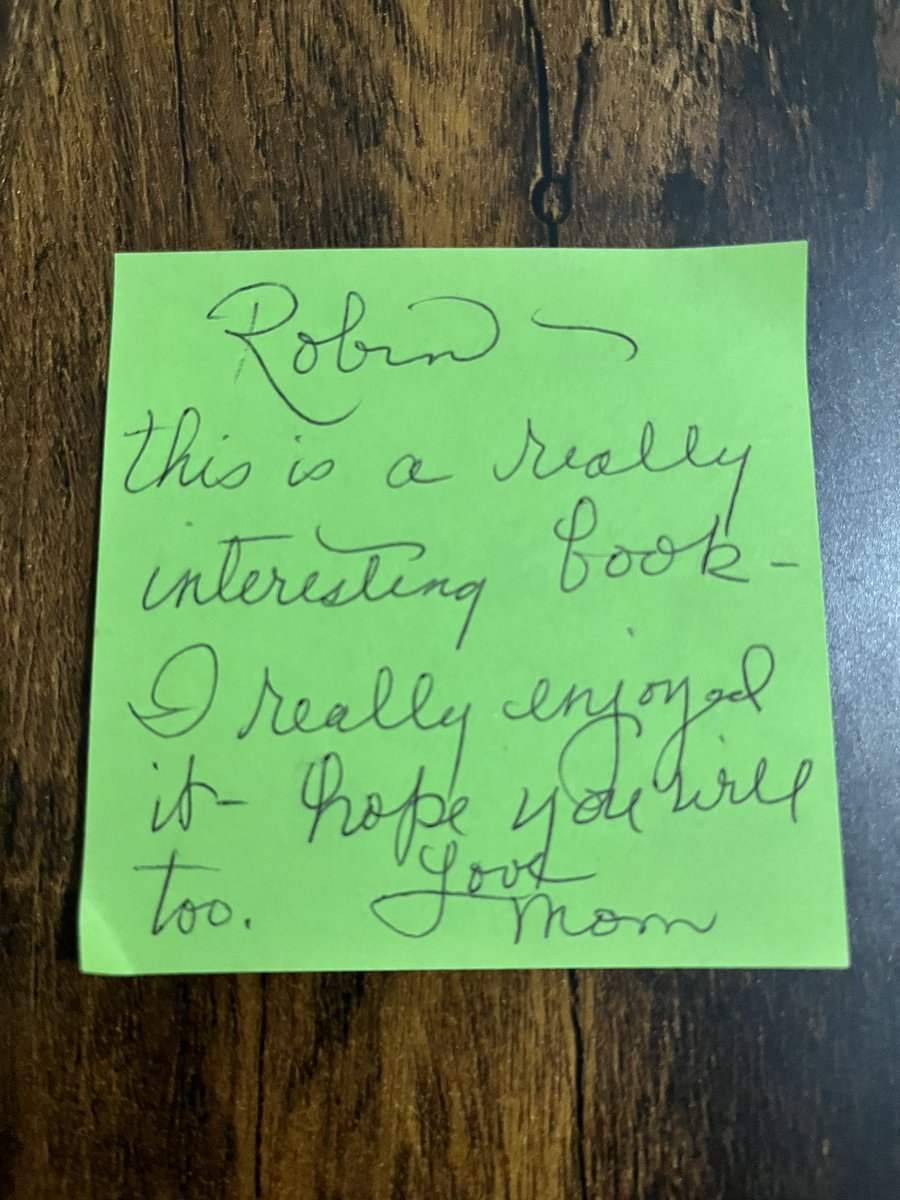 Robin –
this is a really
interesting book –
I really enjoyed
it – hope you will
too. Love
Mom